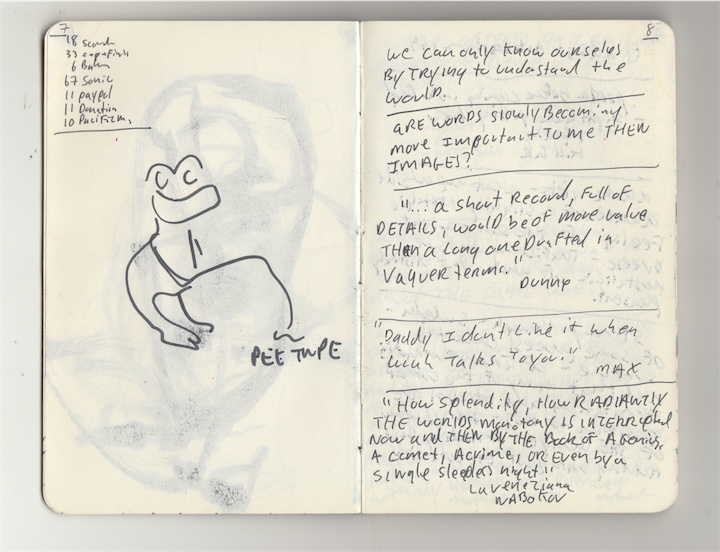 7
18 Scout
33
6
67 Sonic
11 paypal
11 Donation
10
PEE TAPE
8
We can only know ourselves
By TRying to undestand the
World.
ARE WORDS slowly Becoming
more Important To me THEN
IMAGES?
"... a short Record, Full of
DETAILS, would be of more value
THEn a Long one Drafted in
Vaguer terms."
Dunne
"Daddy I don't Like it when
talks To you."
MAX
"How splendidly, How RADIANTLY
THE WORLDS monotony IS INTERRUPTED
Now and THEN BY THE Book of A Genius,
A Comet, A crime, OR Even by a
single sleepless night"
La Veneziana
NABOKOV